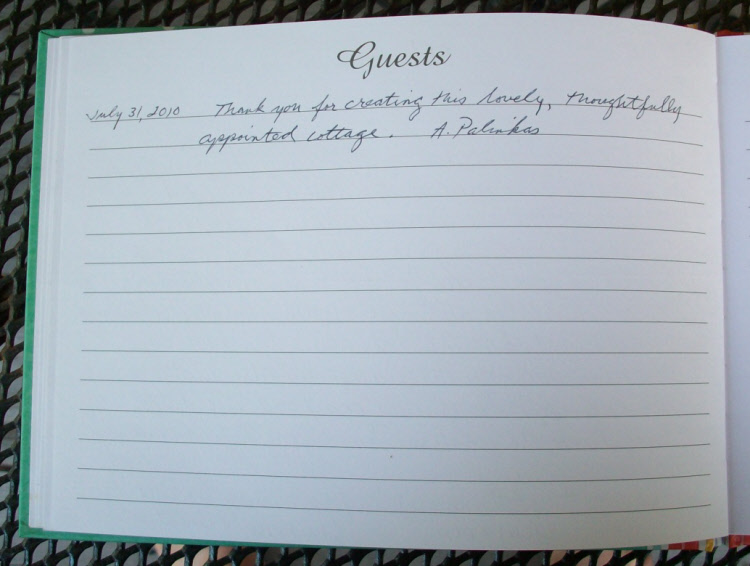 Guests
July 31, 2010 Thank you for creating this lovely, thoughtfully
appointed cottage. A. Palinkas